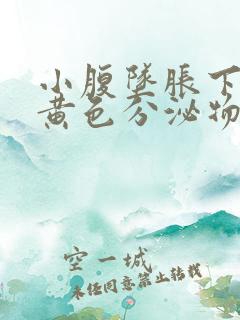 小腹墜脹下
黄色分泌物
空一城
未经同意禁止转载